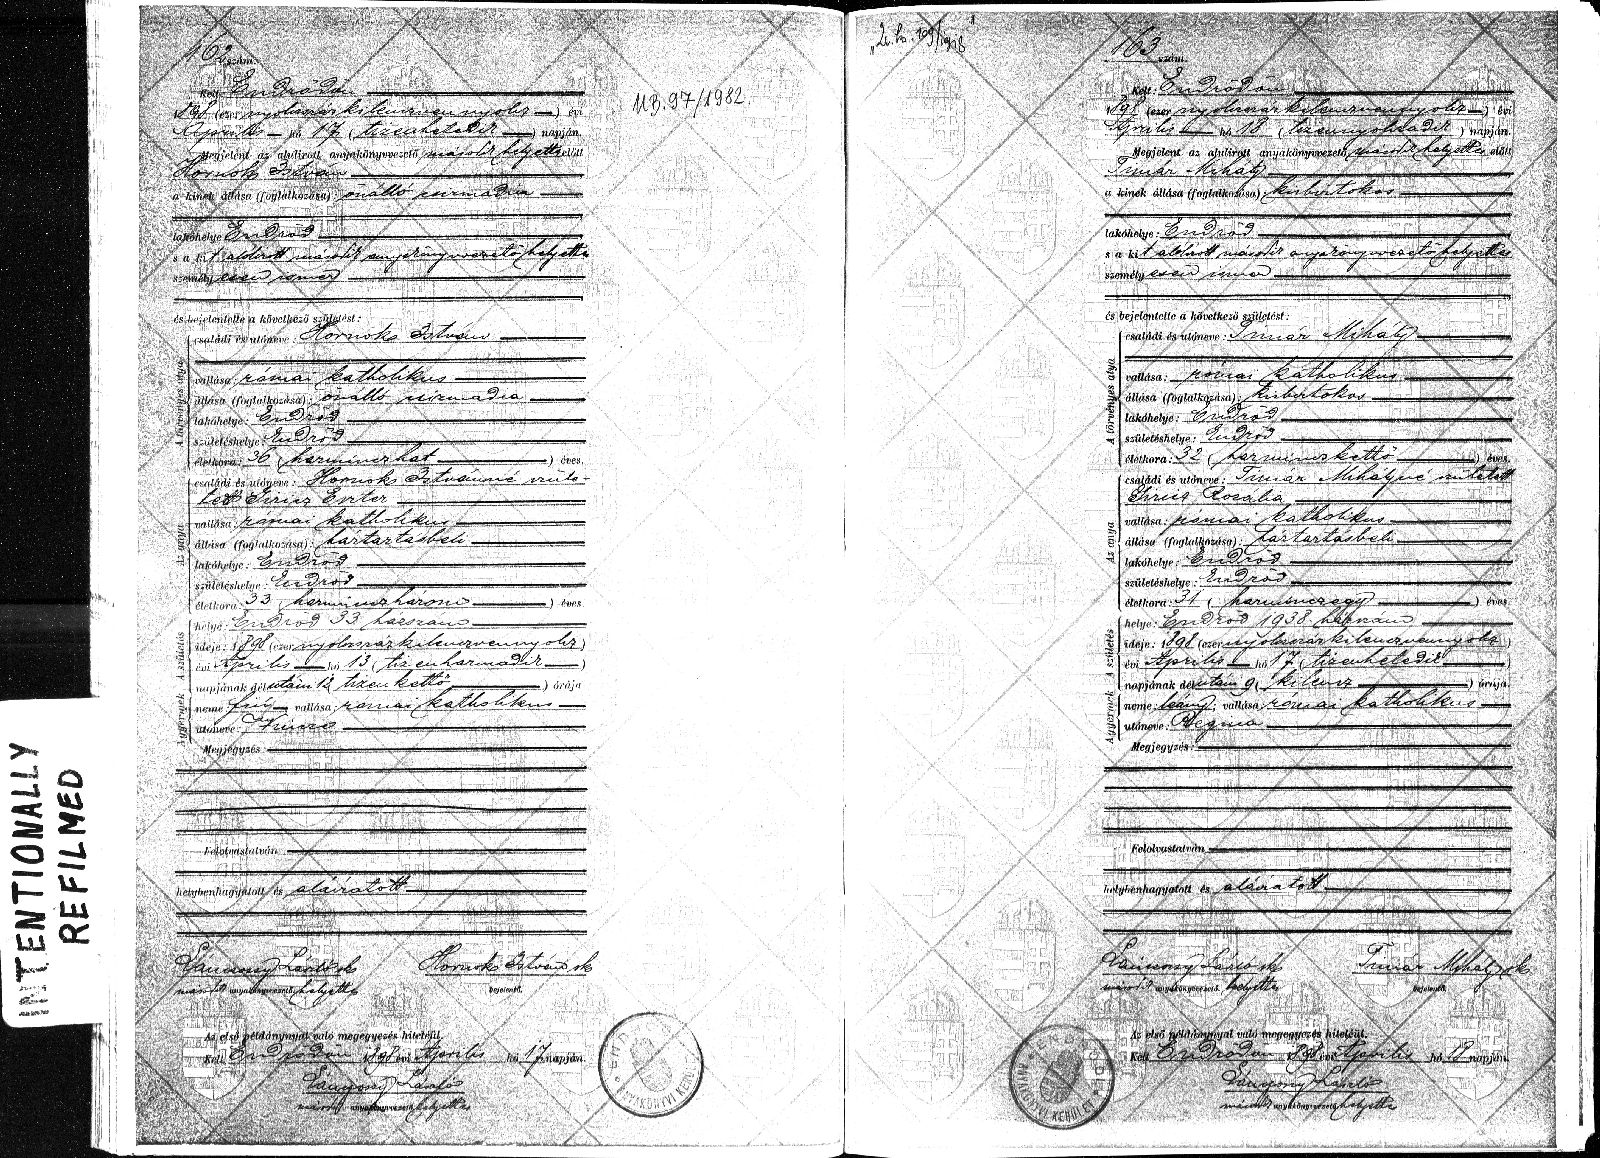 INTENTIONALLY
REFILMED
162 szám.
Kelt Endrődön
1898 (ezer nyolcszázkilencvennyolc) évi
Április hó 17 (tizenhetedik) napján.
Megjelent az alulírott anyakönyvvezető második helyettes előtt
Hornoks István
a kinek állása (foglalkozása): önálló
lakóhelye Endrőd
s a kit alólirott második anyakönyvvezető helyettes
személyesen ismer
és bejelentette a következő születést:
A törvényes atya
családi és utóneve: Hornoks István
vallása: római katholikus
állása (foglalkozása): önálló
lakóhelye: Endrőd
születéshelye: Endrőd
életkora: 36 (harminczhat) éves.
Az anya
családi és utóneve: Hornoks Istvánné szüle-
tett Eszter
vallása: római katholikus
állása (foglalkozása): háztartásbeli
lakóhelye: Endrőd
születéshelye: Endrőd
életkora: 33 (harminczhárom) éves
A születés
helye: Endrőd 33 házszám
ideje: 1898 (ezer nyolcszázkilencvennyolc)
évi Április hó 13 (tizenharmadik)
napjának délután 12 tizenkettő) órája
A gyermek
neme fiú vallása: római katholikus
utóneve: Vincze
Megjegyzés:
Felolvastatván,
helybenhagyatott és aláíratott
László sk Hornoks István sk
második anyakönyvvezető helyettes bejelentő.
Az első példánynyal való megegyezés hiteléül.
Kelt Endrődön 1898 évi Április hó 17 napján.
László
második anyakönyvvezető helyettes
11B.97/1982
163 szám.
Kelt: Endrődön
1898 (ezer nyolcszázkilencvennyolc) évi
Április hó 18 (tizennyolcadik) napján.
Megjelent az alulírott anyakönyvvezető második helyettes előtt
Timár Mihály
a kinek állása (foglalkozása) kisbirtokos
lakóhelye: Endrőd
s a kit alólirott második anyakönyvvezető helyettes
személyesen ismer
és bejelentette a következő születést:
A törvényes atya
családi és utóneve: Timár Mihály
vallása: római katholikus
állása (foglalkozása): kisbirtokos
lakóhelye: Endrőd
születéshelye: Endrőd
életkora: 32 (harminczkettő) éves.
Az anya
családi és utóneve: Timár Mihályné született
Rozália
vallása: római katholikus
állása (foglalkozása): háztartásbeli
lakóhelye: Endrőd
születéshelye: Endrőd
életkora: 31 (harminczegy) éves.
A születés
helye: Endrőd 1938 házszám
ideje: 1898 (ezer nyolcszázkilencvennyolc)
évi Április hó 17 (tizenhetedik)
napjának délután 9 (kilencz) órája.
A gyermek
neme: leány; vallása: római katholikus
utóneve: Regina
Megjegyzés:
Felolvastatván
helybenhagyatott és aláíratott
László sk Timár Mihály sk
második anyakönyvvezető. helyettes bejelentő.
Az első példánynyal való megegyezés hiteléül.
Kelt Endrődön 1898 évi Április hó 18 napján.
László
második anyakönyvvezető helyettes
ENDRŐDI
ANYAKÖNYVI KERÜLET